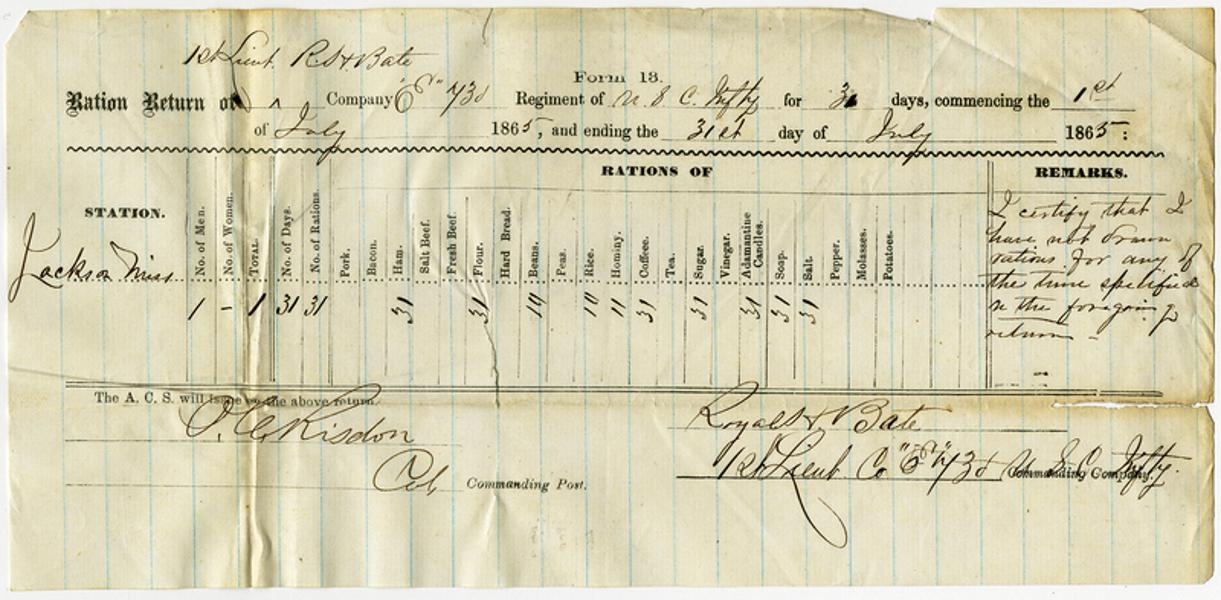 1st Lieut. R. S. H. Bate
Form 13.
Ration Return of ^ Company "E" 53d Regiment of U S C Infty for 31 days, commencing the 1st
of July 1865, and ending the 31st day of July 1865:
RATIONS OF
REMARKS.
STATION.
No. of Men.
No. of Women.
TOTAL.
No. of Days.
No. of Rations.
Pork.
Bacon.
Ham.
Salt Beef.
Fresh Beef.
Flour.
Hard Bread.
Beans.
Peas.
Rice.
Hominy.
Coffeee.
Tea.
Sugar.
Vinegar.
Adamantine Candles.
Soap.
Salt.
Pepper.
Molasses.
Potatoes.
Jackson Miss.
1 – 1 31 31 31 31 31 31 31 31 31
I certify that I
have not drawn
rations for any of
the time specified
in the foregoing
return –
The A. C. S. will issue on the above return.
O. C. Risdon
Col, Commanding Post.
Bate
1st Lieut. Co "E" 53d U. S. C. Infty.
Commanding Company.